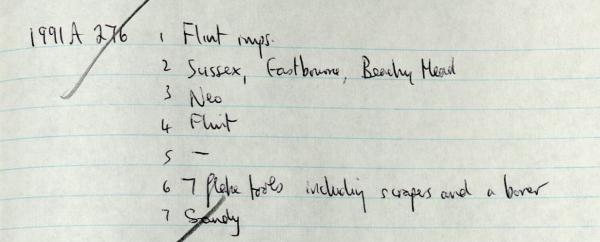 1991A 276 1 Flint imps.
2 Sussex, Eastbourne, Beachy Head
3 Neo
4 Flint
5 —
6 7 flake tools including scrapers and a borer
7 Sandy